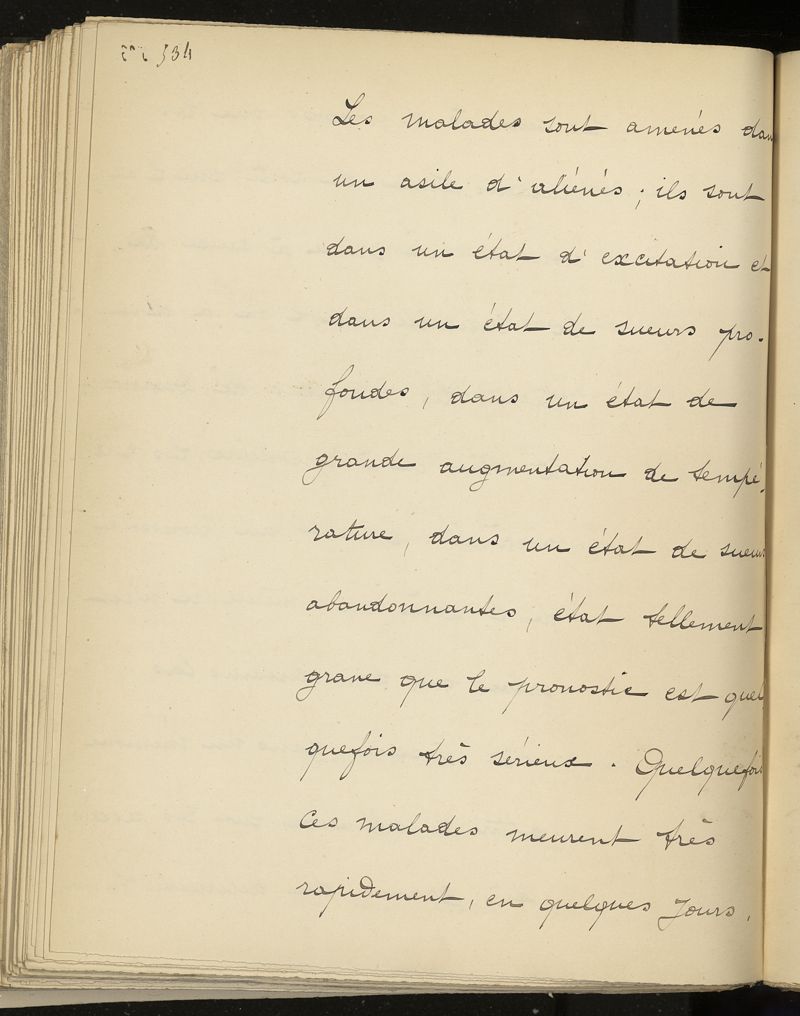 534
Les malades sont amenés dans
un asile d'aliénés ; ils sont
dans un état d'excitation et
dans un état de sueurs pro-
fondes, dans un état de
grande augmentation de tempé-
rature, dans un état de sueurs
abandonnantes, état tellement
grave que le pronostic est quel
quefois très sérieux. Quelquefois
ces malades meurent très
rapidement, en quelques jours,